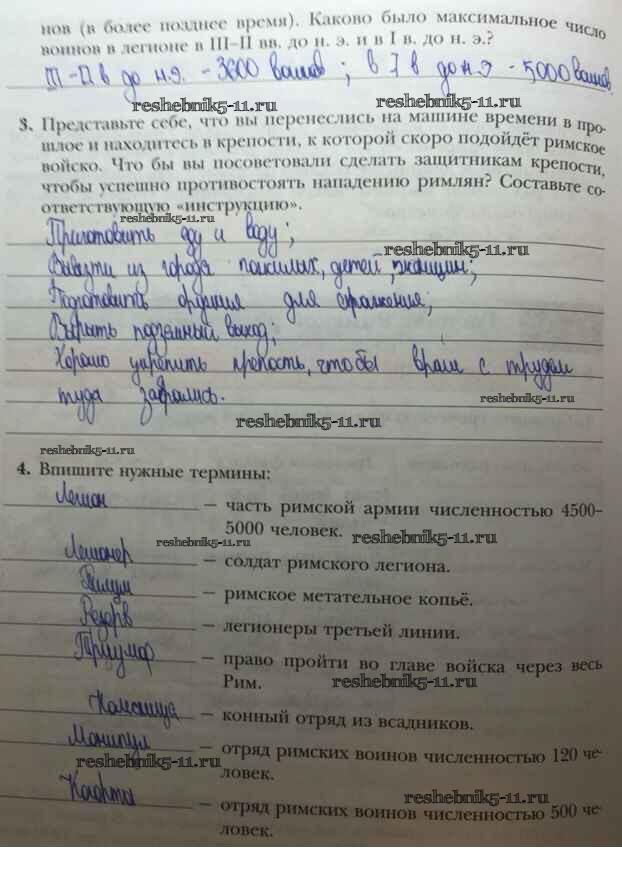 нов (в более позднее время). Каково было максимальное число
воинов в легионе в III–II вв. до н. э. и в I в. до н. э.?
III – II в до н.э. - 3600 воинов ; в I в до н.э - 5000 воинов
reshebnik5-11.ru
reshebnik5-11.ru
3. Представьте себе, что вы перенеслись на машине времени в про-
шлое и находитесь в крепости, к которой скоро подойдёт римское
войско. Что бы вы посоветовали сделать защитникам крепости,
чтобы успешно противостоять нападению римлян? Составьте со-
ответствующую «инструкцию».
reshebnik5-11.ru
Приготовить еду и воду;
reshebnik5-11.ru
Вывезти из города пожилых, детей, женщин;
Подготовить орудия для сражения;
Вырыть подземный выход;
Хорошо укрепить крепость, чтобы враги с трудом
туда забрались.
reshebnik5-11.ru
reshebnik5-11.ru
reshebnik5-11.ru
4. Впишите нужные термины:
Легион — часть римской армии численностью 4500–
5000 человек.
reshebnik5-11.ru
reshebnik5-11.ru
Легионер — солдат римского легиона.
Пилум — римское метательное копьё.
Резерв — легионеры третьей линии.
Триумф — право пройти во главе войска через весь
Рим.
reshebnik5-11.ru
— конный отряд из всадников.
Манипул — отряд римских воинов численностью 120 че-
ловек.
reshebnik5-11.ru
Когорта — отряд римских воинов численностью 500 че-
ловек.
reshebnik5-11.ru